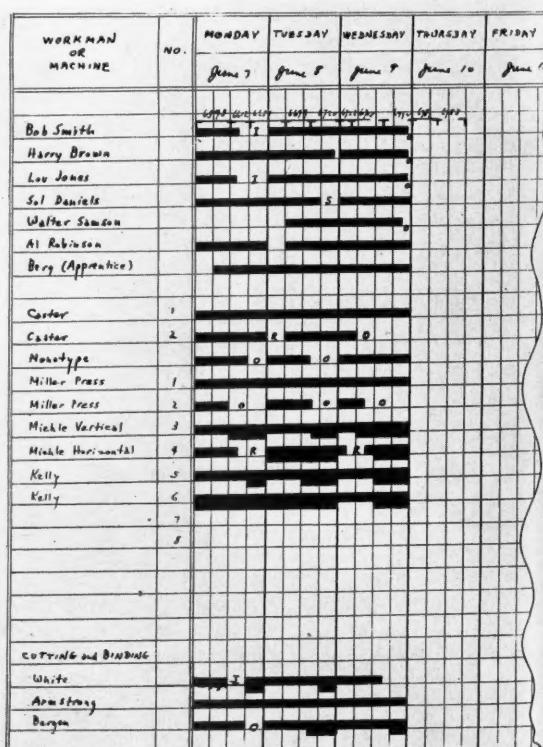 WORKMAN OR MACHINE NO. MONDAY TUESDAY WEDNESDAY THURSDAY FRIDAY
June 7 June 8 June 9 June 10 June
Bob Smith I
Harry Brown
Lou Jones I
Sol Daniels S
Walter Samson
Al Robinson
Berg (Apprentice)
Caster 1
Caster 2 R O
Monotype O O
Miller Press 1
Miller Press 2 O O O
Miehle Vertical 3
Miehle Horizontal 4 R R
Kelly 5
Kelly 6
7
8
CUTTING and BINDING
White I
Armstrong
Bergen O